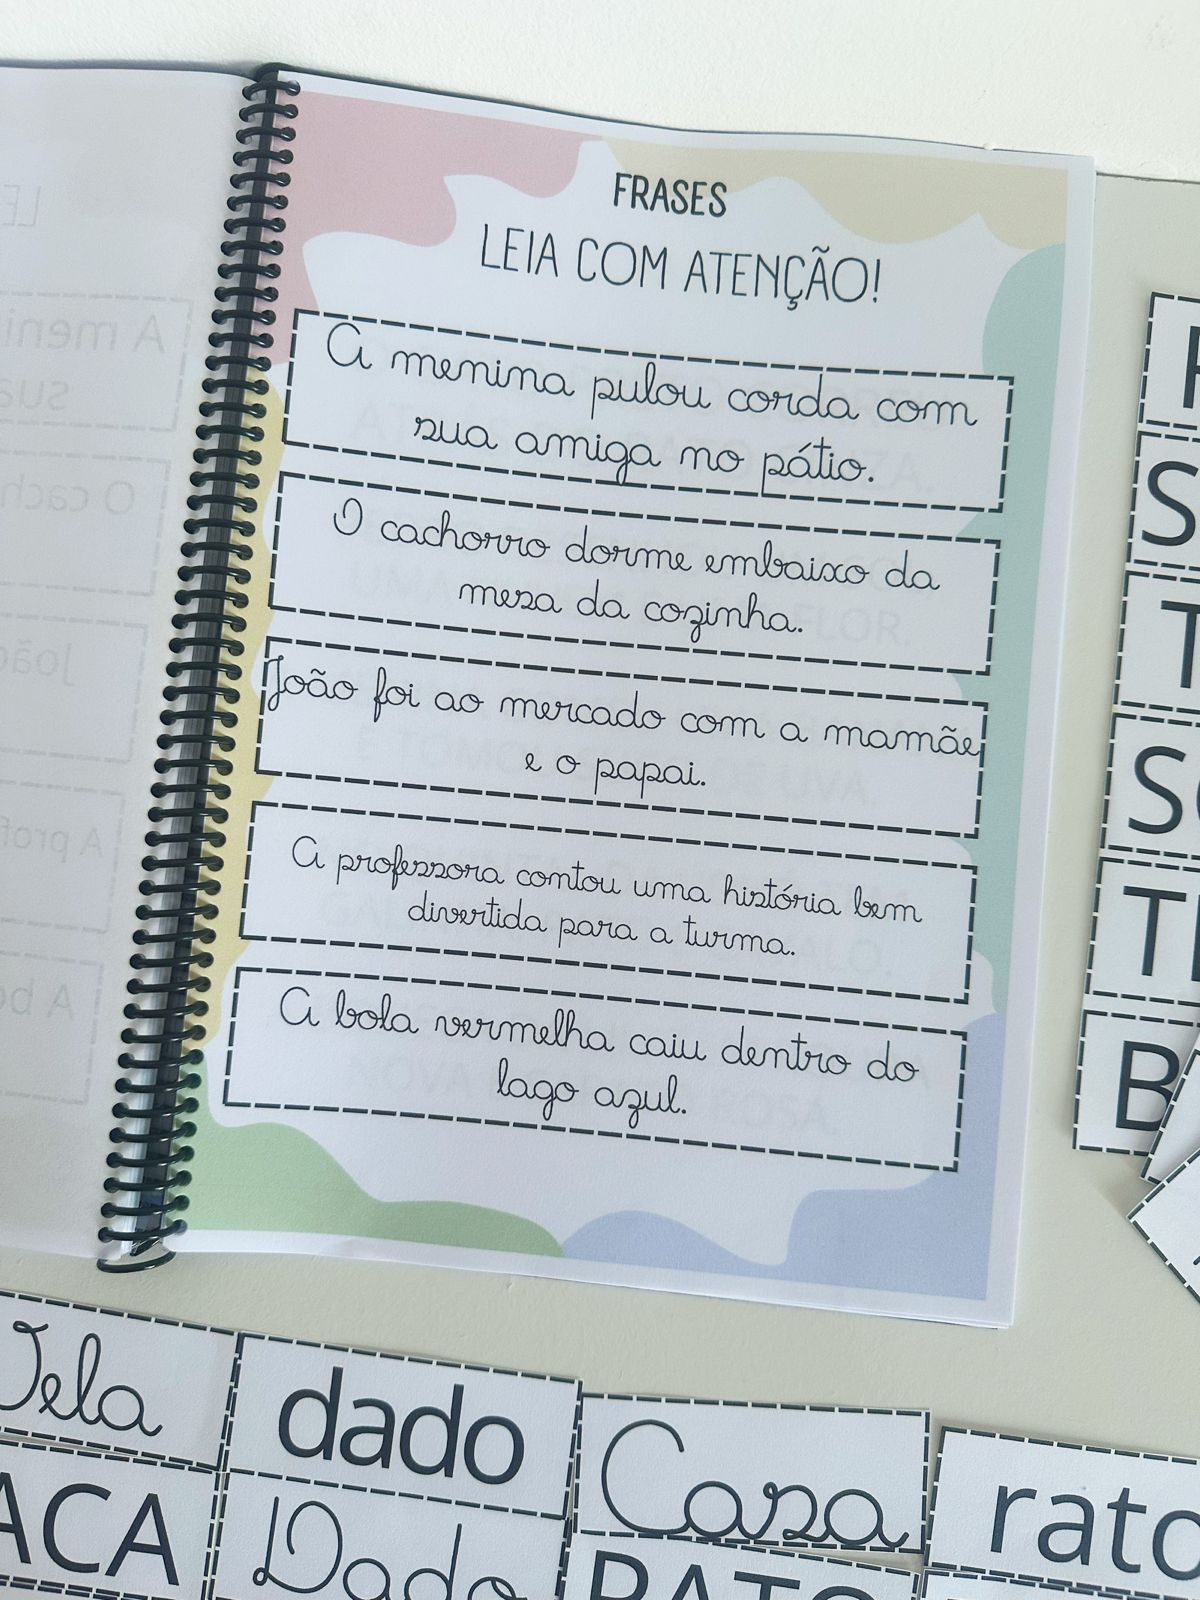 FRASES
LEIA COM ATENÇÃO!
A menina pulou corda com
sua amiga no pátio.
O cachorro dorme embaixo da
mesa da cozinha.
João foi ao mercado com a mamãe
e o papai.
A professora contou uma história bem
divertida para a turma.
A bola vermelha caiu dentro do
lago azul.
Tela
dado
Casa
rato
ACA
Dado
RATO